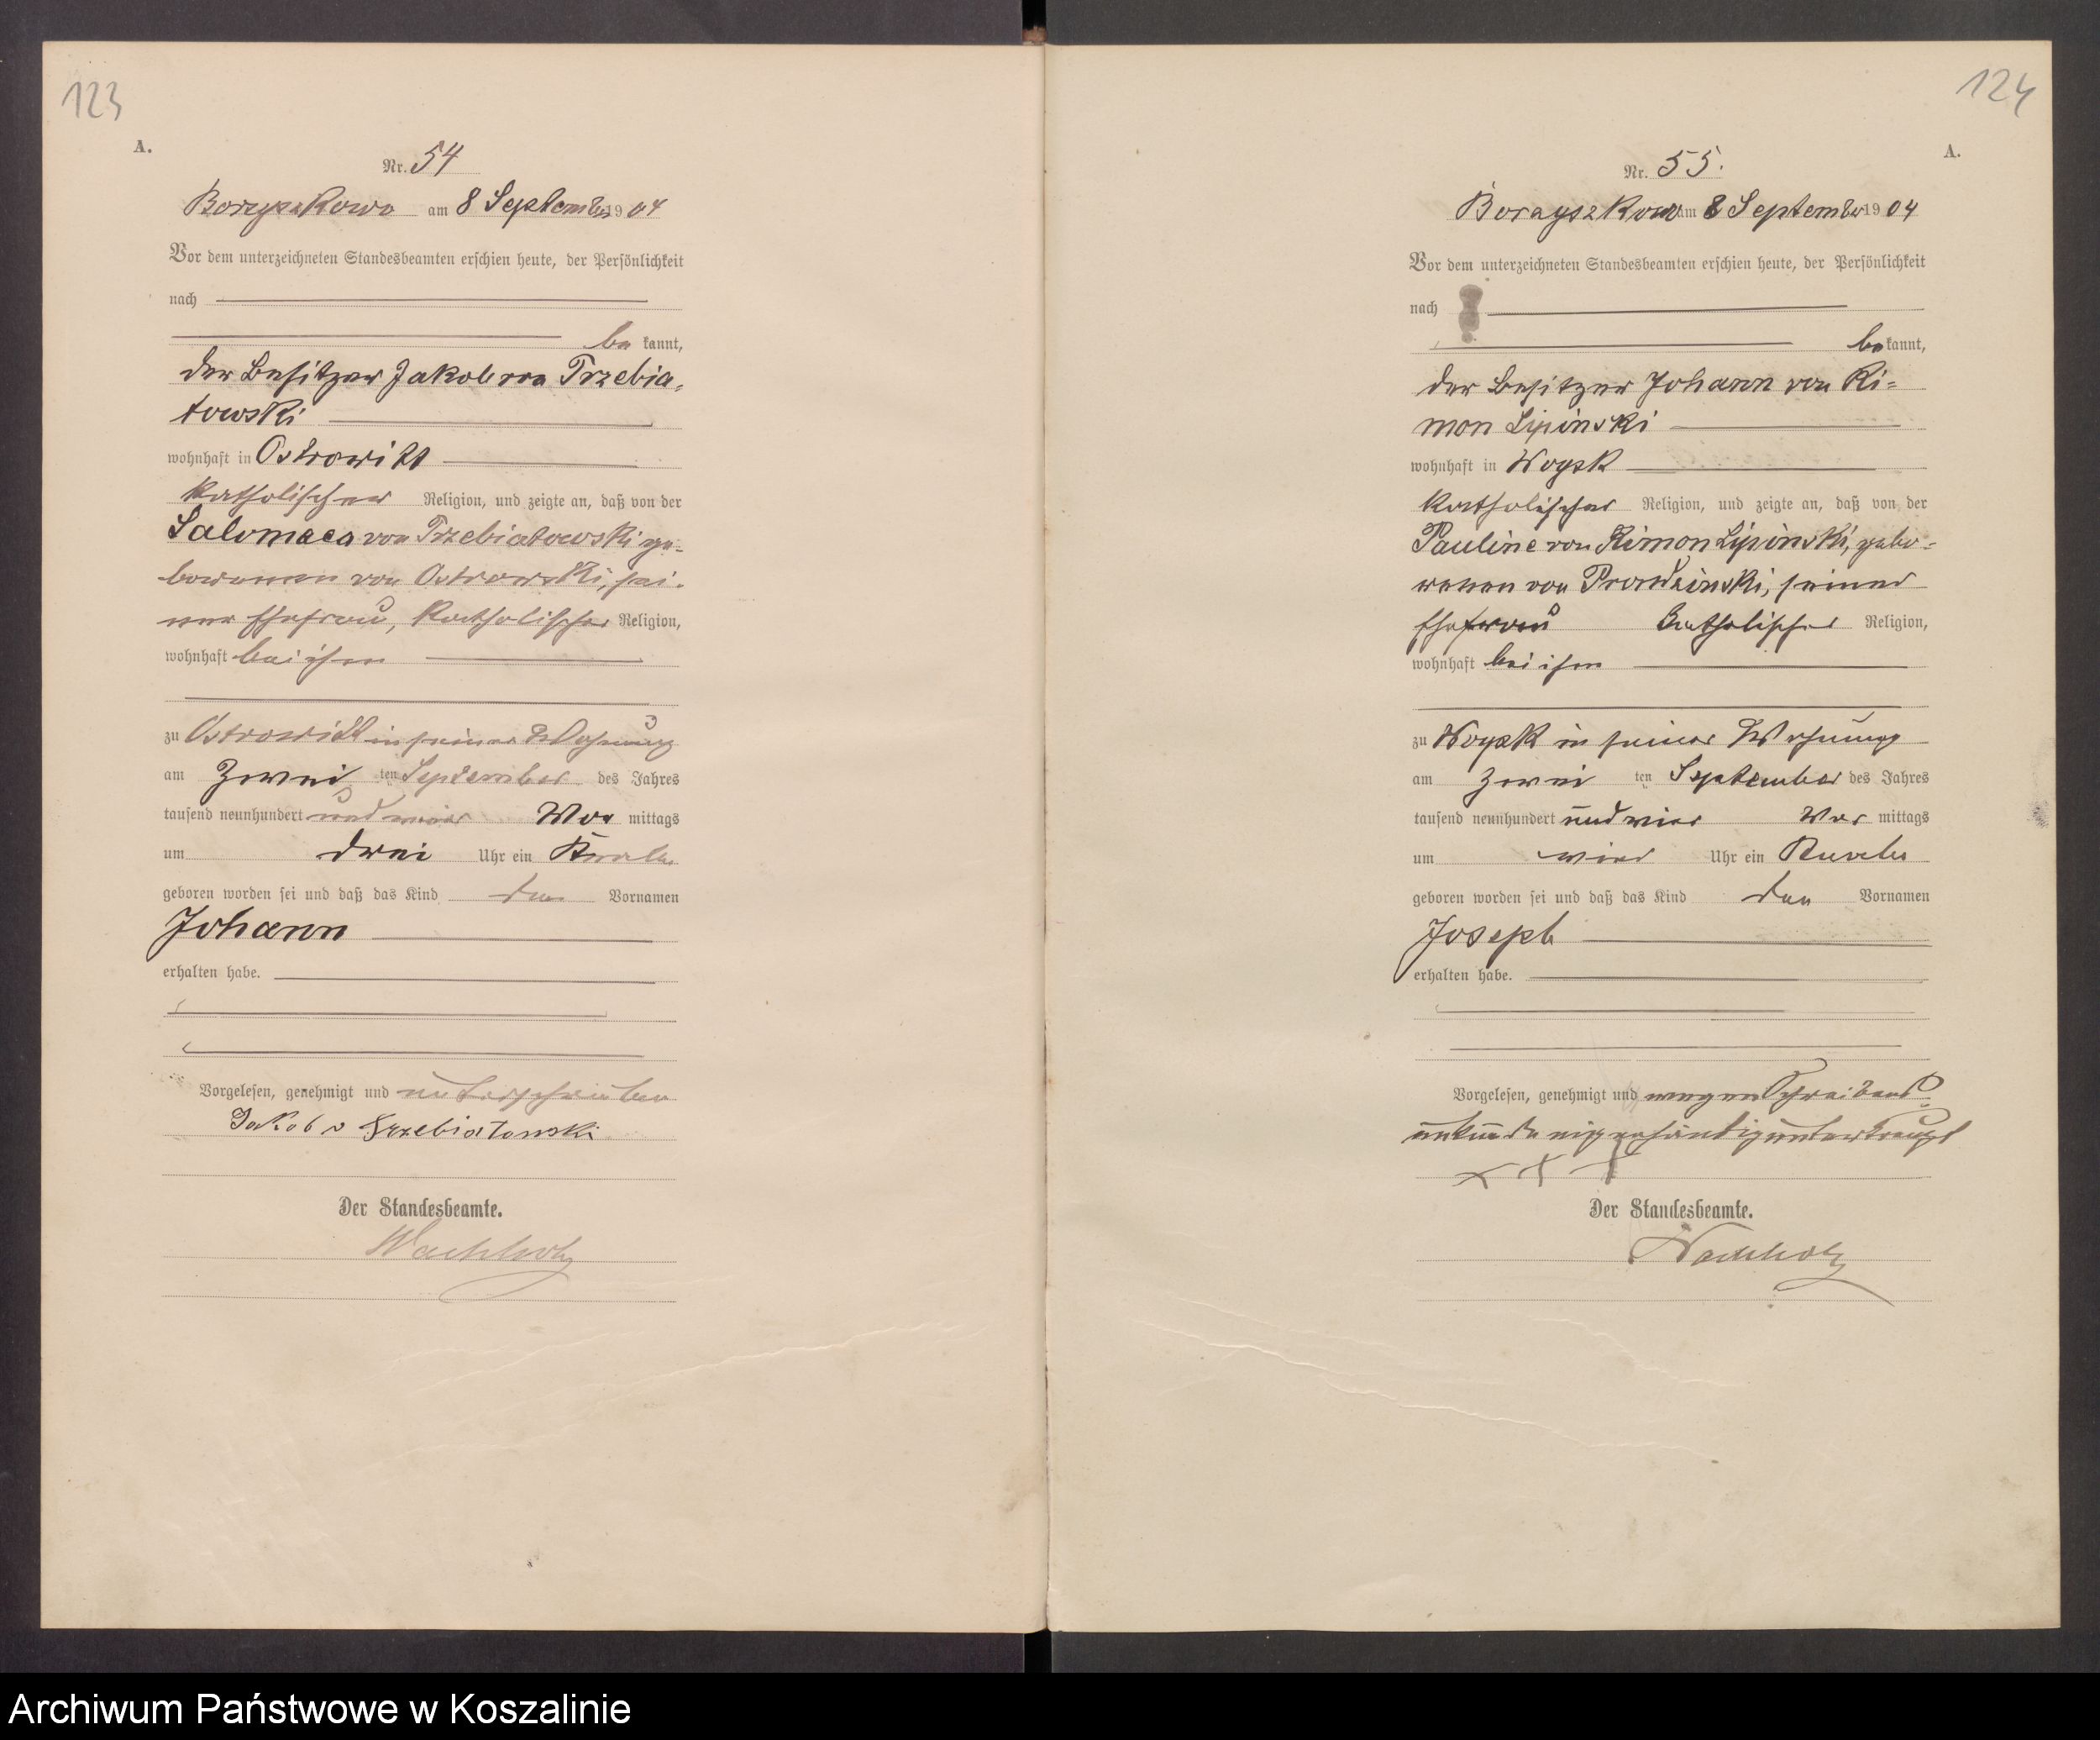 123
A.
Nr. 54
Borzyskowo am 8 September 1904
Vor dem unterzeichneten Standesbeamten erschien heute, der Persönlichkeit
nach
be kannt,
der Besitzer Jakob von Trzebia-
towski
wohnhaft in Ostrowitt
katholischer Religion, und zeigte an, daß von der
Salomaea von Trzebiatowski ge-
borenen von Ostrowski, sei-
ner Ehefrau, katholischer Religion,
wohnhaft bei ihm
zu Ostrowitt in seiner Wohnung
am zwei ten September des Jahres
tausend neunhundert und vier Vor mittags
um drei Uhr ein Knabe
geboren worden sei und daß das Kind den Vornamen
Johann
erhalten habe.
Vorgelesen, genehmigt und unterschrieben
Jakob v Trzebiatowski
Der Standesbeamte.
Wachholz
124
A.
Nr. 55.
Borzyszkowo am 8 September 1904
Vor dem unterzeichneten Standesbeamten erschien heute, der Persönlichkeit
nach
be kannt,
der Besitzer Johann von Ki-
mon Lipinski
wohnhaft in Woysk
katholischer Religion, und zeigte an, daß von der
Pauline von Kimon Lipinski, gebo-
renen von Prondzinski, seiner
Ehefrau katholischer Religion,
wohnhaft bei ihm
zu Woysk in seiner Wohnung
am zwei ten September des Jahres
tausend neunhundert und vier Vor mittags
um vier Uhr ein Knabe
geboren worden sei und daß das Kind den Vornamen
Joseph
erhalten habe.
Vorgelesen, genehmigt und wegen Schreibens
unkunde eigenhändig unterkreuzt
+ + +
Der Standesbeamte.
Wachholz
Archiwum Państwowe w Koszalinie